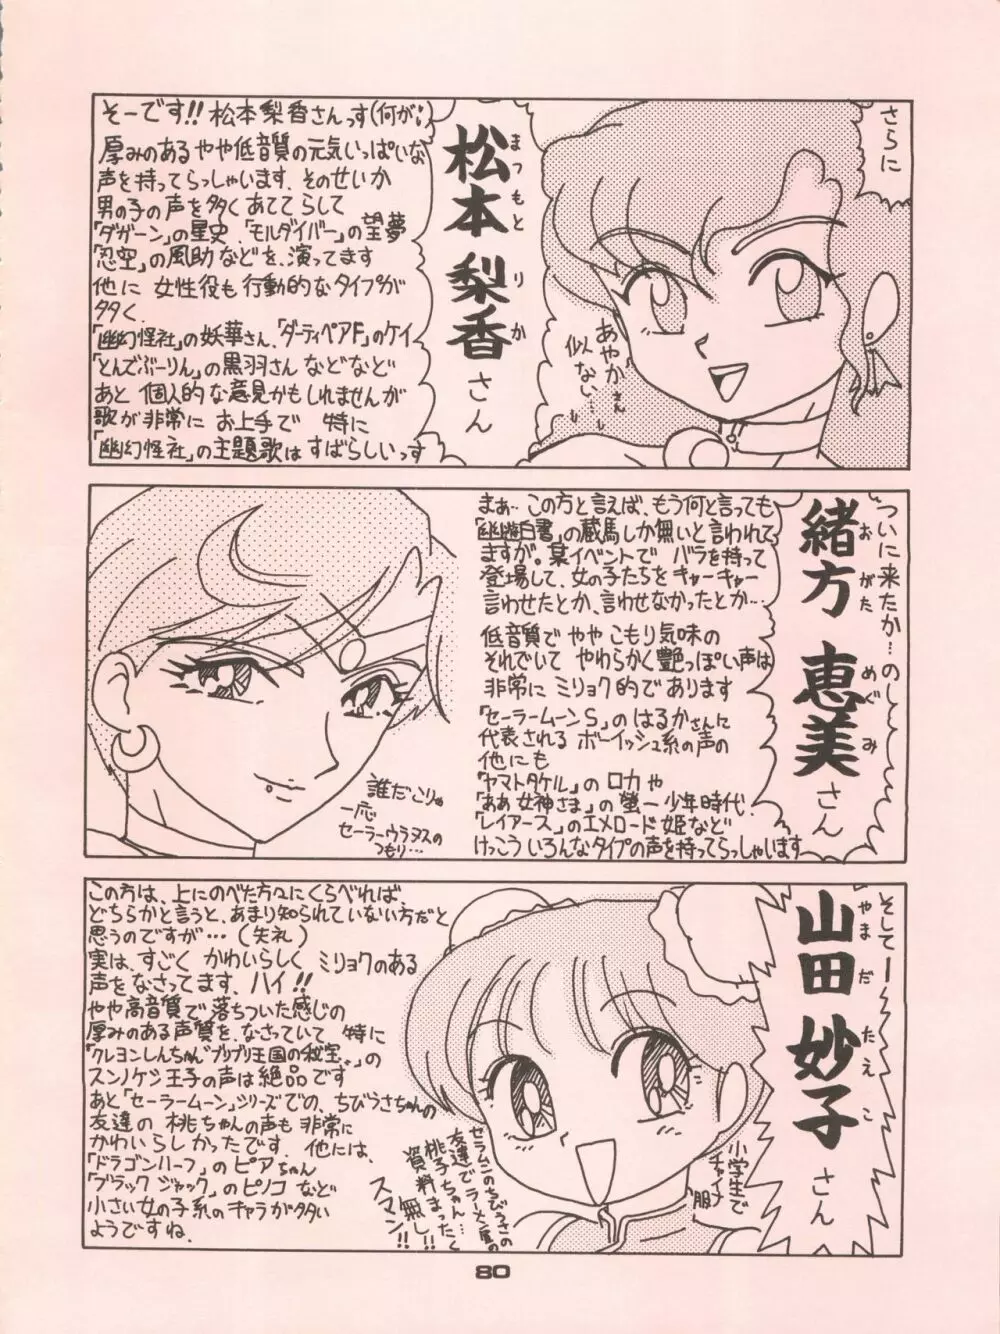 さらに
松本 梨香 さん
まつもと りか
そーです!! 松本梨香さんっす(何が;)
厚みのあるやや低音質の元気いっぱいな
声を持ってらっしゃいます、そのせいか
男の子の声を多くあててらして
「ダガーン」の星史、「モルダイバー」の望夢
「忍空」の風助などを、演ってます
他に 女性役も行動的なタイプが
多く、
「幽幻怪社」の妖華さん、「ダーティペアF」のケイ
「とんでぶーりん」の黒羽さん などなど
あと 個人的な意見かもしれませんが
歌が非常に お上手で 特に
「幽幻怪社」の主題歌はすばらしいっす
あやかさん
似ない…
ついに来たか…のしみ
緒方 恵美 さん
おがた めぐみ
まぁ… この方と言えば、もう何と言っても
「幽遊白書」の蔵馬しか無いと言われて
ますが。某イベントで バラを持って
登場して、女の子たちをキャーキャー
言わせたとか、言わせなかったとか…
低音質で ややこもり気味の
それでいて やわらかく艶っぽい声は
非常に ミリョク的であります
「セーラームーンS」の はるかさんに
代表される ボーイッシュ系の声の
他にも
「ヤマトタケル」の ロカ や
「ああ女神さま」の 螢一少年時代
「レイアース」のエメロード姫など
けっこういろんなタイプの声を持ってらっしゃいます
誰だこりゃ
一応
セーラーウラヌスの
つもり…
そしてー
山田 妙子 さん
やまだ たえこ
この方は、上にのべた方々にくらべれば、
どちらかと言うと、あまり知られていない方だと
思うのですが…(失礼)
実は、すごく かわいらしく ミリョクのある
声をなさってます、ハイ!!
やや高音質で落ちついた感じの
厚みのある声質を、なさっていて 特に
「クレヨンしんちゃん ブリブリ王国の秘宝」の
スンノケシ王子の声は絶品です
あと「セーラームーン」シリーズでの、ちびうさちゃんの
友達の 桃ちゃんの声も 非常に
かわいらしかったです。他には、
「ドラゴンハーフ」の ピアちゃん
「ブラックジャック」の ピノコ など
小さい女の子系のキャラが多い
ようですね。
小学生で
チャイナ服
セラムンのちびうさの
友達でラーメン屋の
桃子ちゃん…
資料まったく
無し!!
スマン!!
80